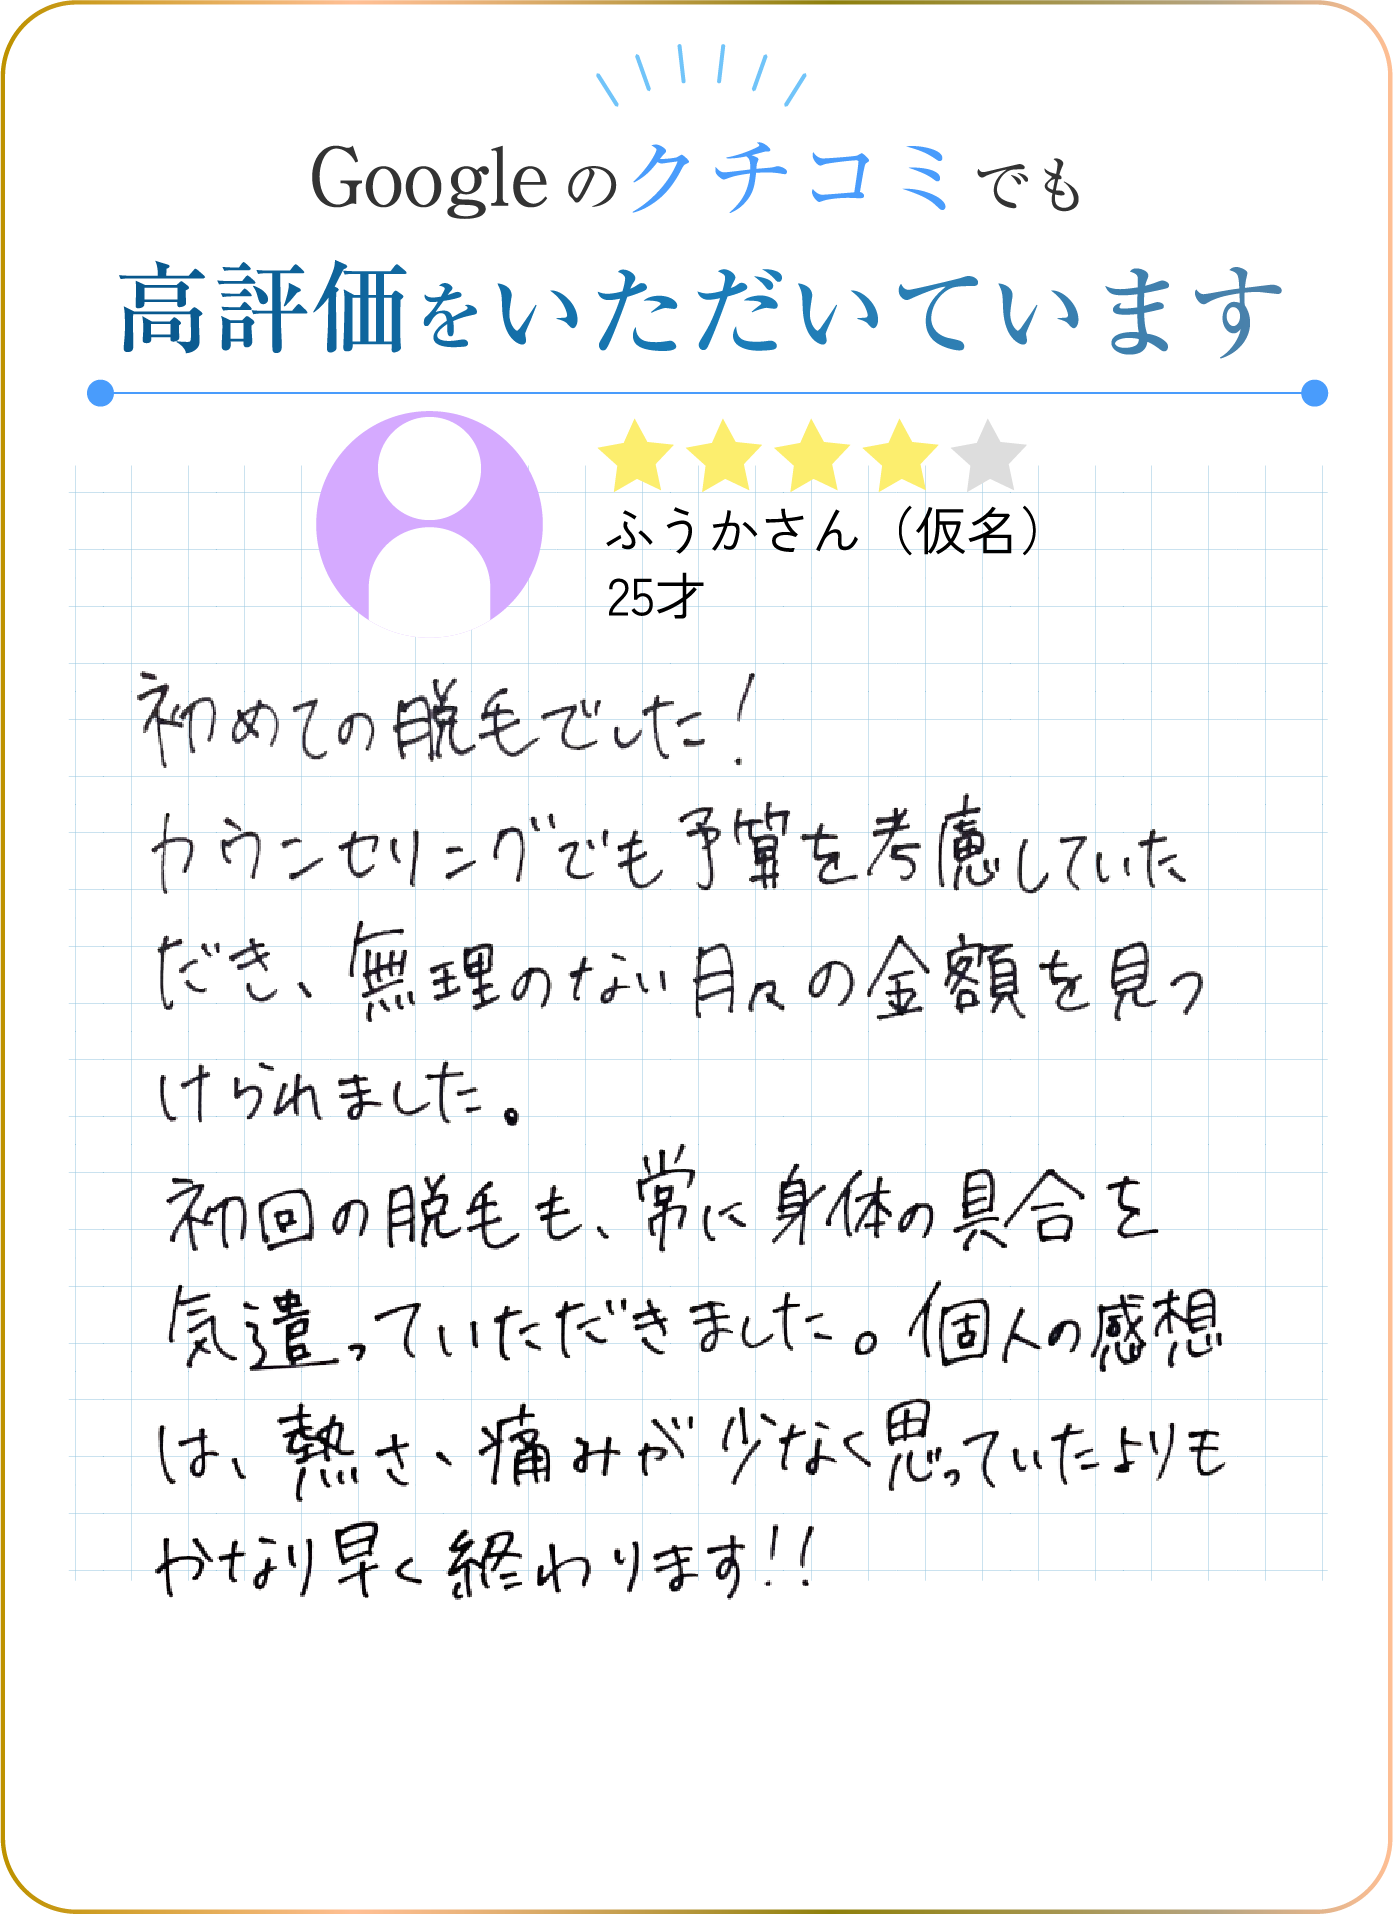 Googleのクチコミでも
高評価をいただいています
ふうかさん（仮名）
25才
初めての脱毛でした！
カウンセリングでも予算を考慮していた
だき、無理のない月々の金額を見つ
けられました。
初回の脱毛も、常に身体の具合を
気遣っていただきました。個人の感想
は、熱さ、痛みが少なく思っていたよりも
かなり早く終わります!!